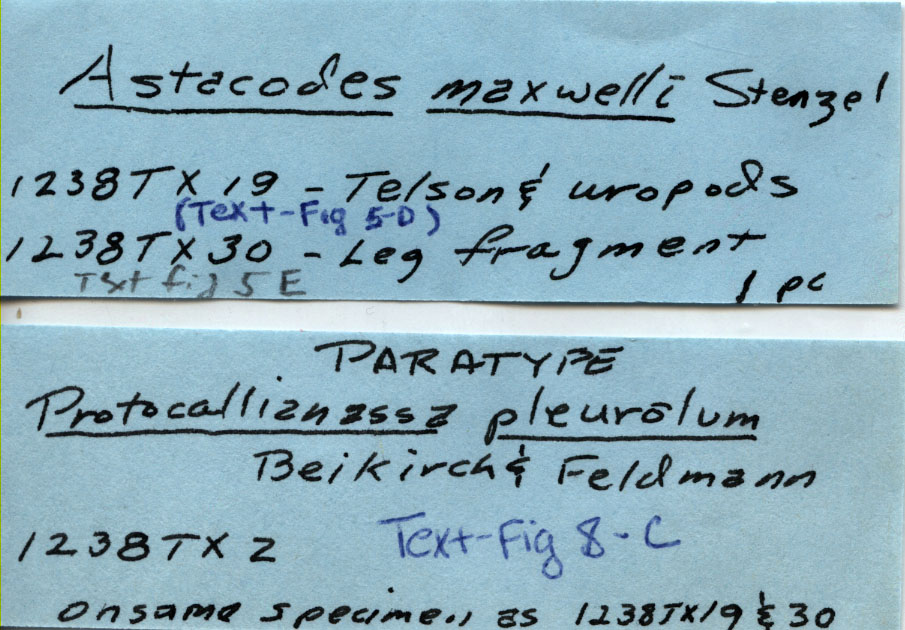 Astacodes maxwelli Stenzel
1238TX 19 - Telson & uropods
(Text-Fig 5-D)
1238TX 30 - Leg fragment
Text fig 5 E
1 pc
PARATYPE
Protocallianassa pleuralum
Beikirch & Feldmann
1238TX 2
Text-Fig 8-C
on same specimen as 1238TX19 & 30